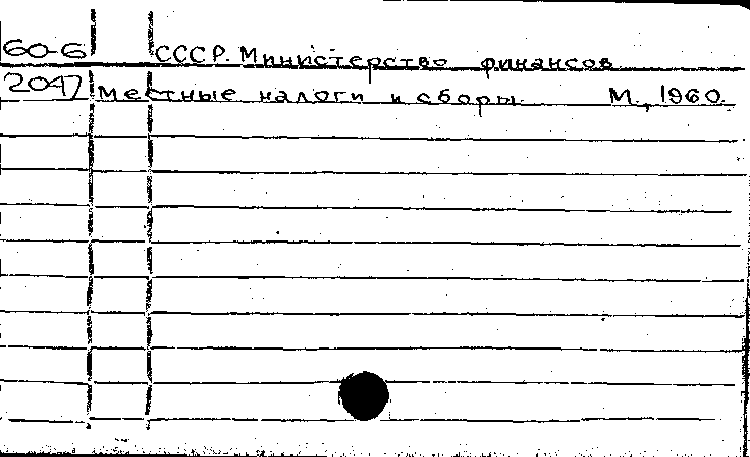 60-6 СССР. Министерство финансов
2047 Местные налоги и сборы. М., 1960.